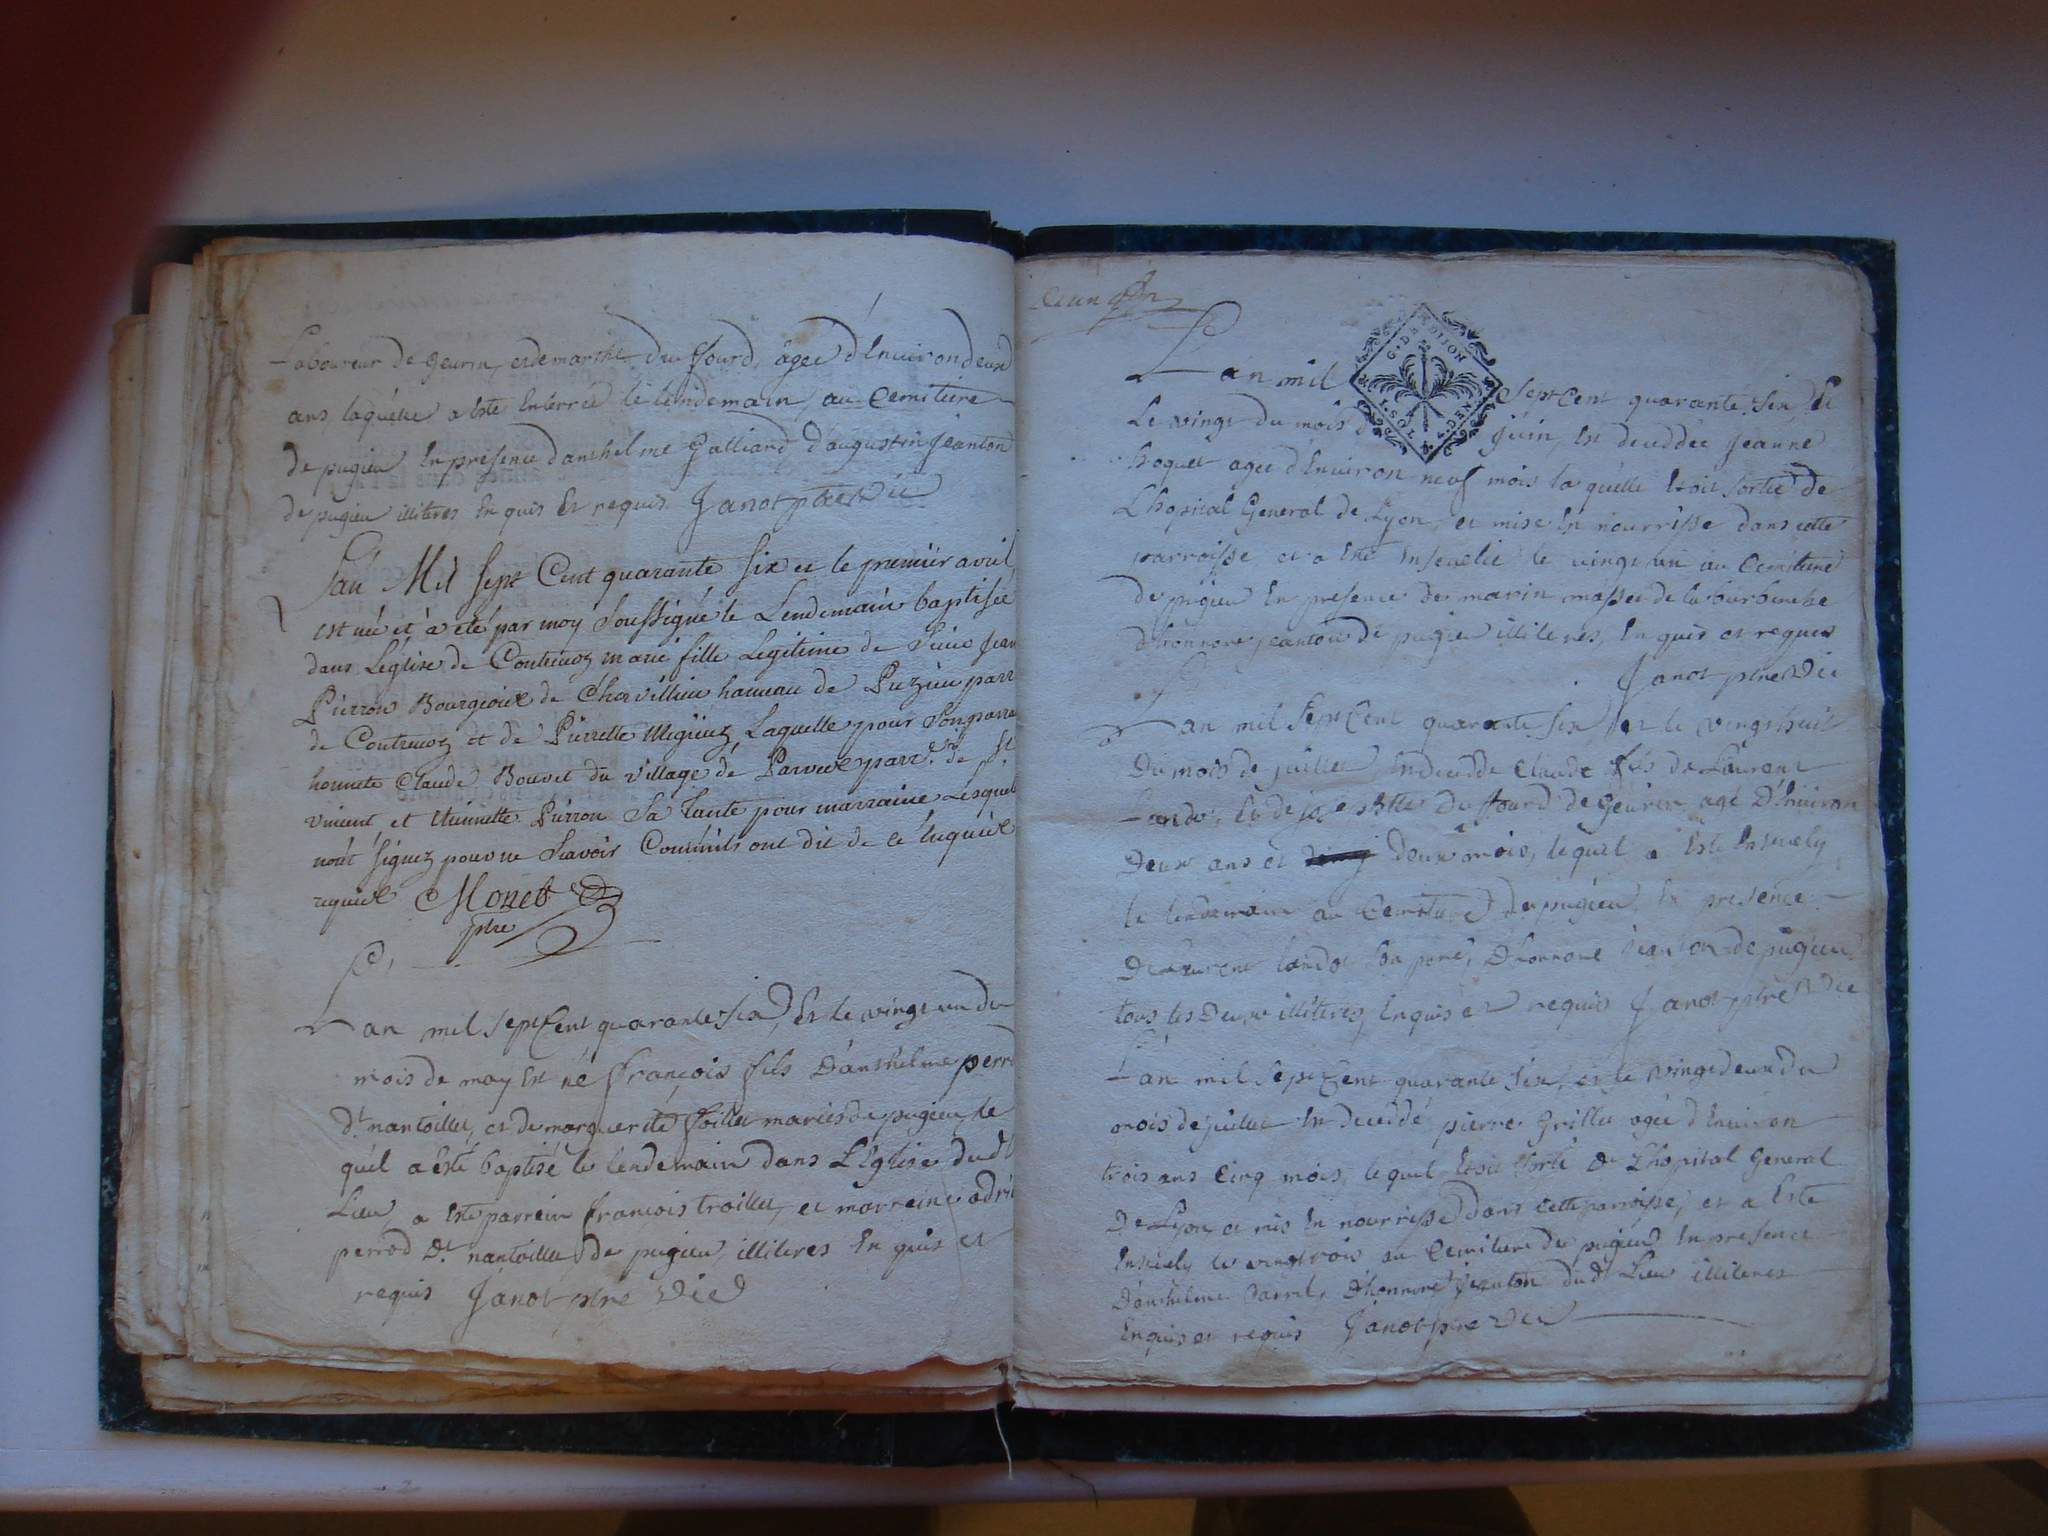 Laboureur de Gevrin, et de marthe du four, agée d'Environ deux
ans laquelle a Esté Enterrée le lendemain, au Cemitiere
de pugieu En presence d'anthelme Galliard d'augustin Jeanton
de pugieu illiteres Enquis Et requis Janot ptre Vic
L'an Mil Sept Cent quarante Six et le premier avril
est née et a été par moy Soussigné le Lendemain baptisée
dans L'eglise de Contrevoz marie fille Legitime de Sieur Jean
Pierron Bourgeoix de Chervillieu hameau de Puzieu parr
de Contrevoz et de Pierrette Laquelle pour Son parra
honnete Claude Bouvet du village de parr. de St
vincent et Pierron Sa tante pour marraine Lesquels
n'ont Signez pour ne Scavoir Comm'ils ont dit de ce Enquiœ
requiœ Monet
ptre
L'an mil sept Cent quarante six, Et le vingt un du
mois de may Est né françois fils D'anthelme perr
Dt nantoillet, et de marguerite mariés de pugieu, le
quel a Esté baptisé le lendemain dans L'Eglise dudt
Lieu, a Esté parrein françois troillet, et marreine adri
perrod Dt nantoillet de pugieu, illiteres Enquis et
requis Janot ptre Vic
G. D. DIJON
L'an mil Sept Cent quarante Six Et
Le vingt du mois de Juin, Est deceddée Jeanne
hoquet agée d'Environ neuf mois laquelle Etoit Sortie de
L'hopital General de Lyon, et mise En nourrisse dans cette
parroisse et a Esté Ensevelie le vingt un au Cemitiere
de pugieu En presence de marin de la burbanche
d'honnoré Jeanton de pugieu illiteres, Enquis et requis
Janot ptre Vic
L'an mil Sept Cent quarante Six, et le vingt huit
Du mois de juillet Est deceddé Claude fils de Laurent
du four de Gevrin agé D'Environ
Deux ans et Deux mois, lequel a Esté Ensevely
le lendemain au Cemitiere de pugieu En presence
De Laurent Son pere, D'honnoré Jeanton de pugieu
tous les Deux illiteres, Enquis et requis Janot ptre Vic
L'an mil Sept Cent quarante Six, et le vingt deux du
mois de juillet Est deceddé pierre Grillet agée d'Environ
trois ans Cinq mois, lequel Etoit Sorti de L'hopital General
De Lyon et mis En nourrisse dans cette parroisse, et a Esté
Ensevely le vingt trois au Cemitiere de pugieu En presence
D'anthelme D'honnoré Jeanton du dt Lieu illiteres
Enquis et requis Janot ptre Vic